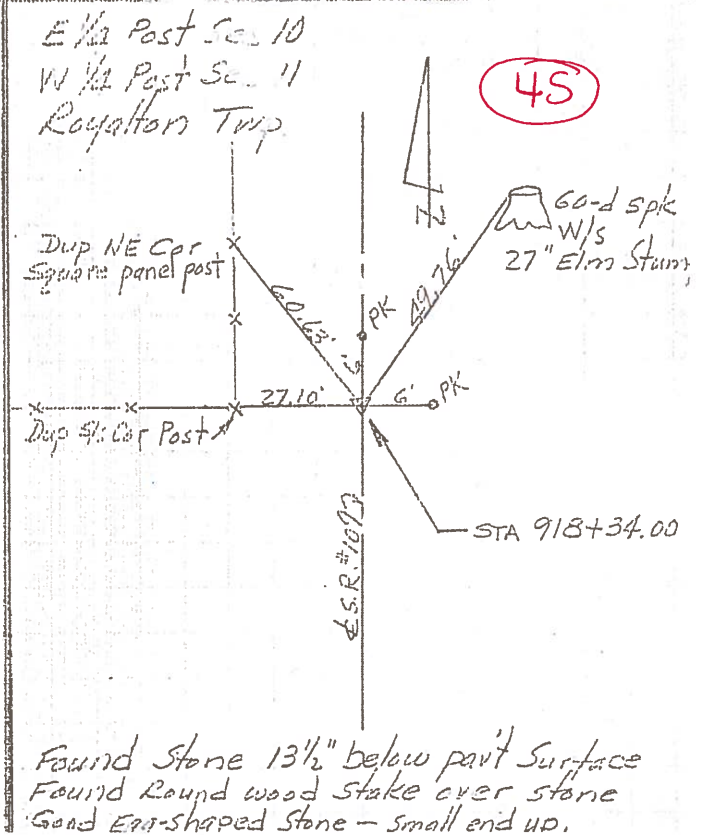 E 1/4 Post Sec. 10
W 1/4 Post Sec. 11
Royalton Twp
45
N
60-d spk
W/S
27" Elm Stump
Dup NE Cor
Square panel post
60.63'
49.76'
PK
6'
27.10'
6'
PK
Dup Cor Post
STA 918+34.00
₵ S.R. #109
Found Stone 13½" below pav't Surface
Found Round wood Stake over stone
Good Egg-shaped Stone — Small end up.